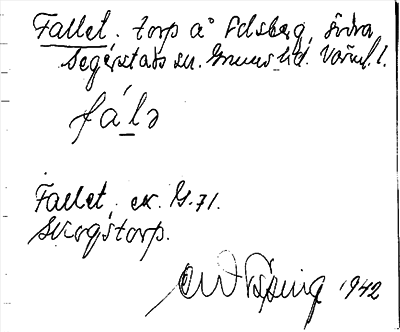 Fallet. torp å Edsberg, södra
Segerstads sn. Grums hd. Värml. l.
fálə
Fallet, ek. G.71.
skogstorp.
1942